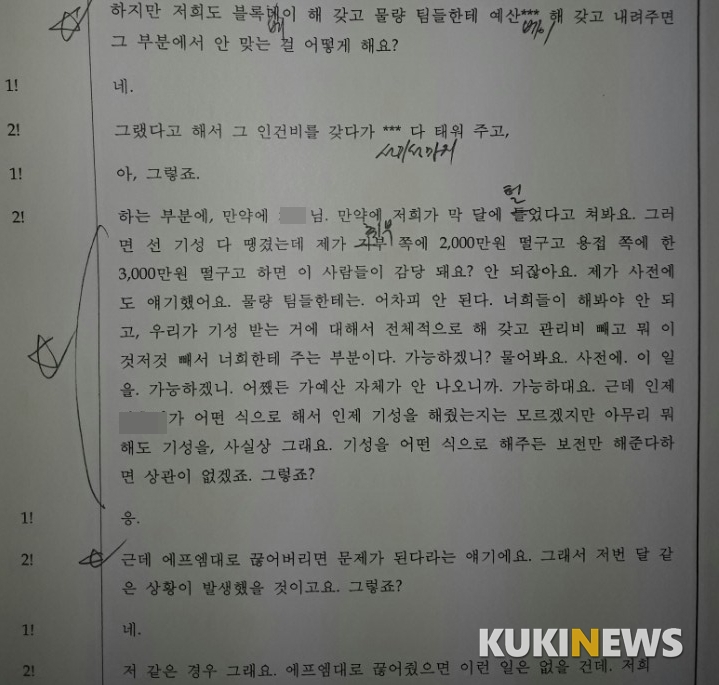 하지만 저희도 블록데이 해 갖고 물량 팀들한테 예산*** 해 갖고 내려주면
그 부분에서 안 맞는 걸 어떻게 해요?
1! 네.
2! 그랬다고 해서 그 인건비를 갖다가 *** 다 태워 주고,
1! 아, 그렇죠.
털
2! 하는 부분에, 만약에 님. 만약에 저희가 막 달에 들었다고 쳐봐요. 그러
면 선 기성 다 땡겼는데 제가 쪽에 2,000만원 떨구고 용접 쪽에 한
3,000만원 떨구고 하면 이 사람들이 감당 돼요? 안 되잖아요. 제가 사전에
도 얘기했어요. 물량 팀들한테는. 어차피 안 된다. 너희들이 해봐야 안 되
고, 우리가 기성 받는 거에 대해서 전체적으로 해 갖고 관리비 빼고 뭐 이
것저것 빼서 너희한테 주는 부분이다. 가능하겠니? 물어봐요. 사전에. 이 일
을. 가능하겠니. 어쨌든 가예산 자체가 안 나오니까. 가능하대요. 근데 인제
가 어떤 식으로 해서 인제 기성을 해줬는지는 모르겠지만 아무리 뭐
해도 기성을, 사실상 그래요. 기성을 어떤 식으로 해주든 보전만 해준다하
면 상관이 없겠죠. 그렇죠?
1! 응.
2! 근데 에프엠대로 끊어버리면 문제가 된다라는 얘기에요. 그래서 저번 달 같
은 상황이 발생했을 것이고요. 그렇죠?
1! 네.
2! 저 같은 경우 그래요. 에프엠대로 끊어줬으면 이런 일은 없을 건데. 저희
KUKINEWS